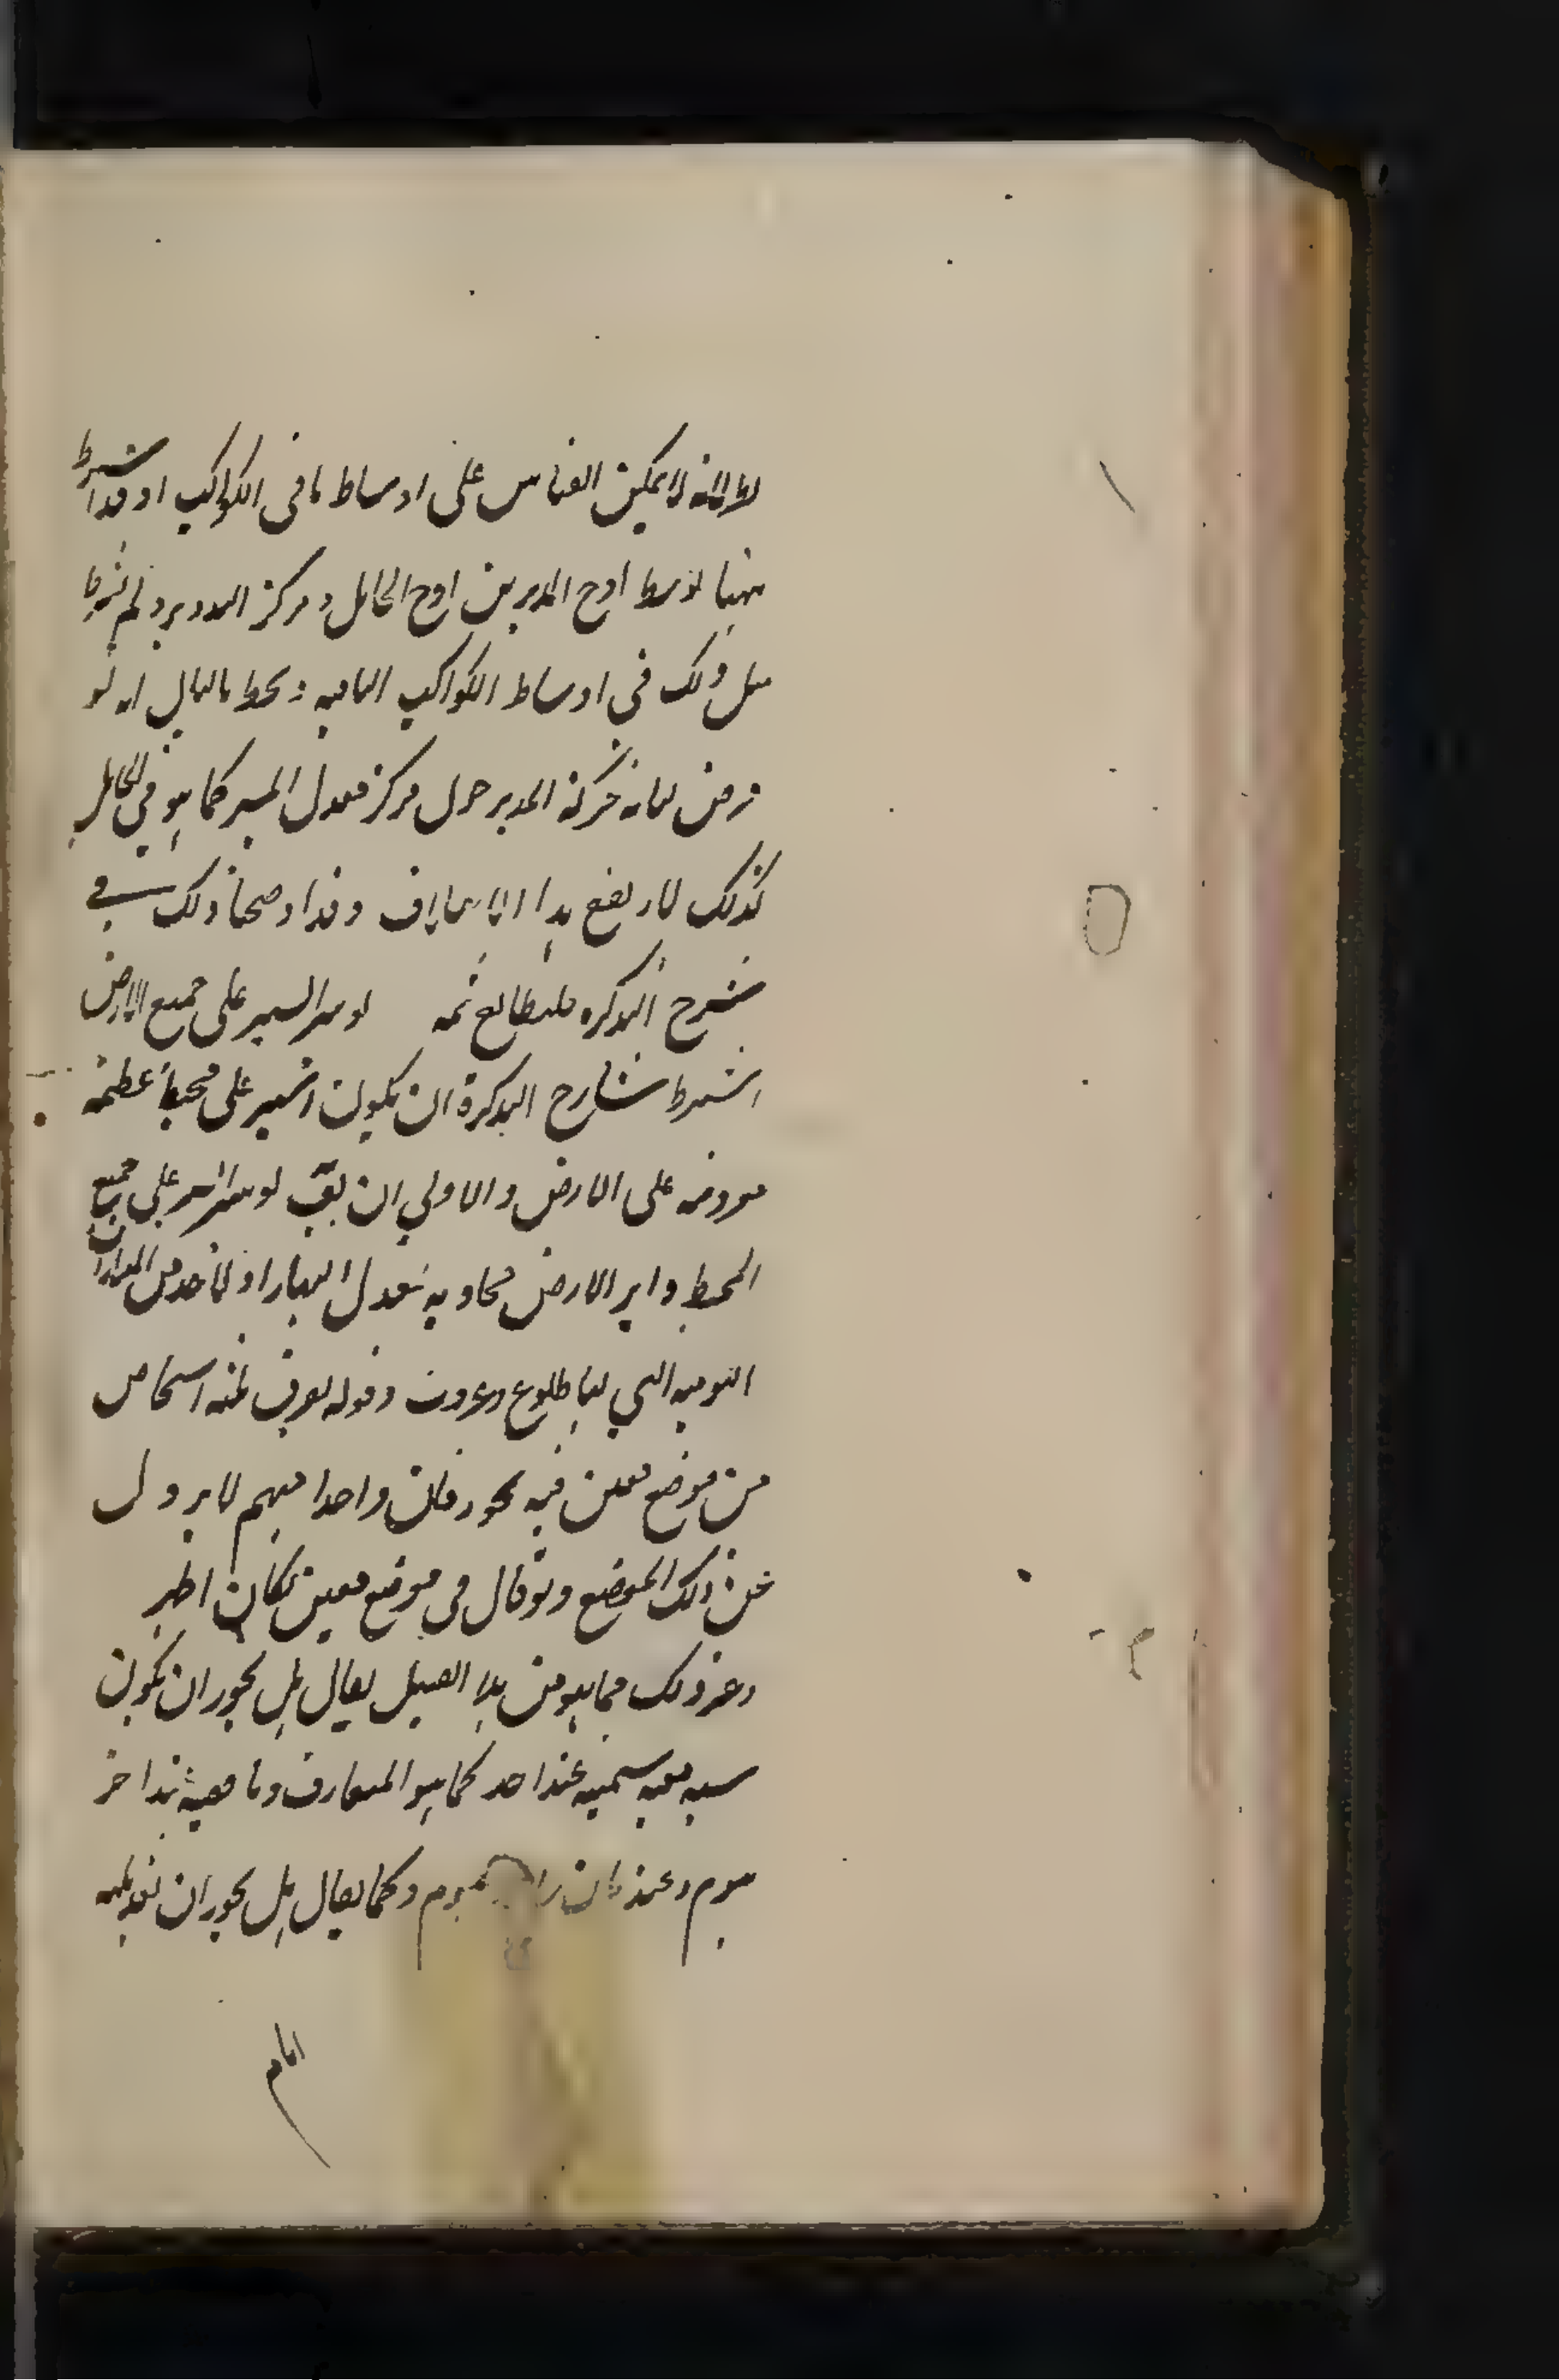 لانه لا يمكن القياس على اوساط باقى الكواكب اذ قد اشترط
ههنا توسط اوج المدير بين اوج الحامل و مركز التدوير و لم يشترط
مثل ذلك في اوساط الكواكب الباقيه و يخط بالبال انه لو
فرض تشابه حركة المدير حول مركز معدل المسير كما هو في الحامل
كذلك لارتفع هذا الاشكال وقد اوضحنا ذلك في
شرح التذكره فليطالع ثمه لو تيسر السير على جميع الارض
اشترط شارح التذكرة ان يكون السير على محيط عظيمة
مفروضه على الارض والاولي ان يق لو تيسر السير على جميع
المحيط دايرة الارض محاذيه لمعدل النهار او لاحد من المدارات
اليوميه التي لها طلوع وغروب وقوله تفرق ثلثه اشخاص
من موضع معين فيه تجوز فان واحدا منهم لا يزول
عن ذلك الموضع ولو قال في موضع معين لكان اظهر
وغير ذلك مما هو من هذا القبيل يقال هل يجوز ان يكون
سنه معينه شمسيه عند احد كما هو المتعارف وناقصة عند اخر
بيوم وعند ثالث زايدة بيوم وكما يقال هل يجوز ان يقع ثلثه
ايام